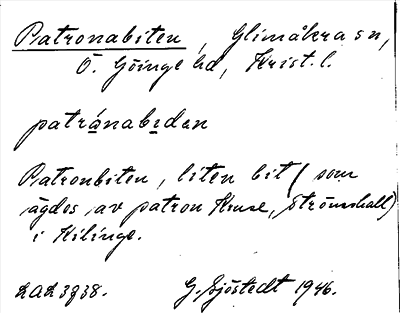 Patronabiten, Glimåkra sn,
Ö. Göinge hd, Krist. l.
patránabidan
Patronbiten, liten bit (som
ägdes av patron Kruse, Strömshall)
i Kilinge.
LAL 3738. G. Sjöstedt 1946.